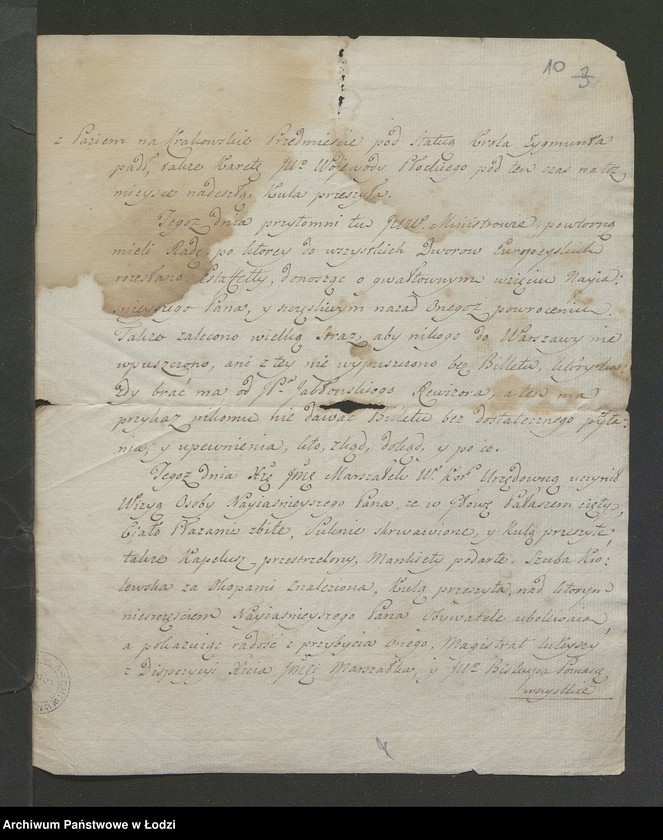 10 3
z Paziem na Krakowskie Przedmieście pod Statuą Krola Zygmunta
padł, także Karetę JMP Wojewody Płockiego pod ten czas na toż
mieysce nadeszłą, Kula przeszyła.
Tegoż dnia przytomni tu JWW. Ministrowie, powtorną
mieli Radę, po ktorey do wszystkich Dworow Europeyskich
rozesłano Estaffetty, donosząc o gwałtownym wzięciu Nayia:
śnieyszego Pana, y szczęśliwym nazad Onegoż powroceniu.
Także zalecono wielką Straż, aby nikogo do Warszawy nie
wpuszczono, ani z tey nie wypuszczono bez Billetu, ktory każ:
dy brać ma od JP. Jabłońskiego Rewizora, a ten ma
przykaz nikomu nie dawać Billetu bez dostatecznego pyta:
nia, y upewnienia, kto, zkąd, dokąd, y po co.
Tegoż dnia Xżę JMć Marszałek W. Kor. Urzędowną uczynił
Wizyą Osoby Nayiaśnieyszego Pana, że w Głowę Pałaszem cięty,
Ciało Płazami zbite, Suknie skrwawione, y Kulą przeszyte
także Kapelusz przestrzelony, Mankiety podarte. Szuba Kro:
lewska za Okopami Znaleziona, Kulą przeszyta, nad ktorym
nieszczęściem Nayiaśnieyszego Pana Obywatele ubolewaią,
a pokazuiąc radość z przybycia Onego, Magistrat tuteyszy
z Dispozycyi Xcia JMći Marszałka, y JMP Biskupa
wszystkie
Archiwum Państwowe w Łodzi